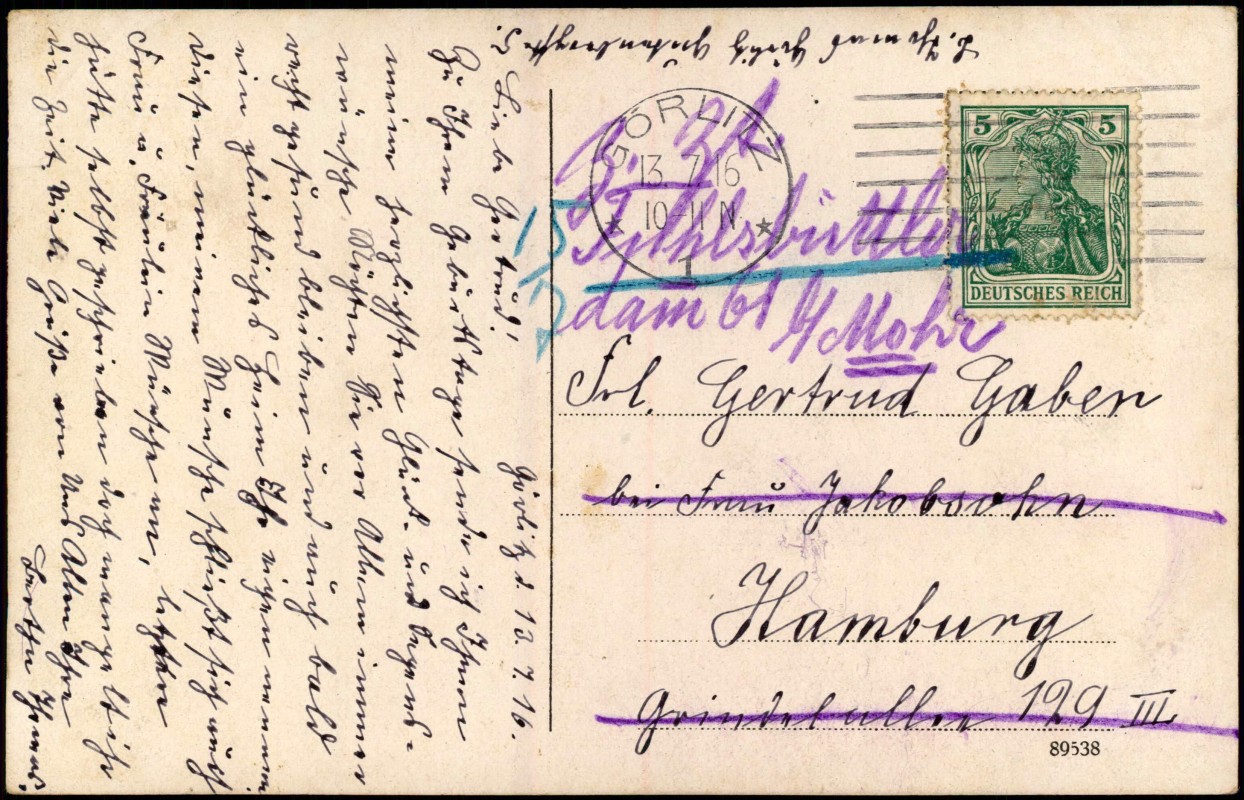 Görlitz d. 13. 7. 16.
Liebe Gertrud!
Zu Ihrem Geburtstage sende ich Ihnen
meine herzlichsten Glück- und Segens-
wünsche. Möchten Sie vor Allem immer
recht gesund bleiben und auch bald
ein glückliches Heim Ihr eigen nennen.
Diesen, meinen Wünschen schließt sich auch
Frau u. Fräulein an, letztere
hätte selbst geschrieben doch mangelt ihr
die Zeit. Viele Grüße von uns Allen Ihre
Görlitz
GÖRLITZ
13.7.16
10-11 N
1
5 5
DEUTSCHES REICH
Fuhlsbüttler
dam 61 b/Mohr
Frl. Gertrud Gaben
bei Frau Jakobsohn
Hamburg
Grindelallee 129 III
89538